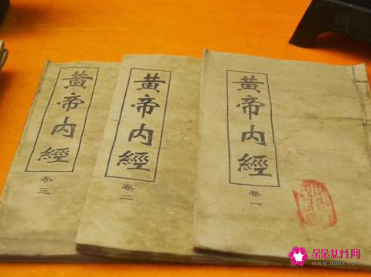 黃帝內經
卷三
黃帝內經
卷二
黃帝內經
卷一
朵朵女性网
www.ddnz.com